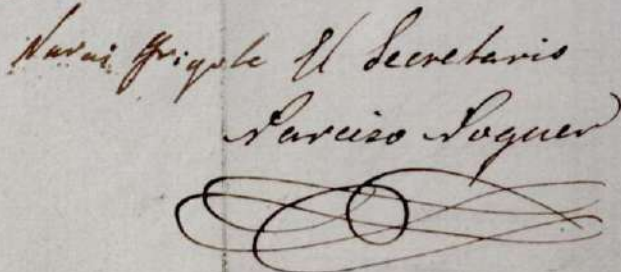 Narcis Frigola El Secretario
Narciso Noguer